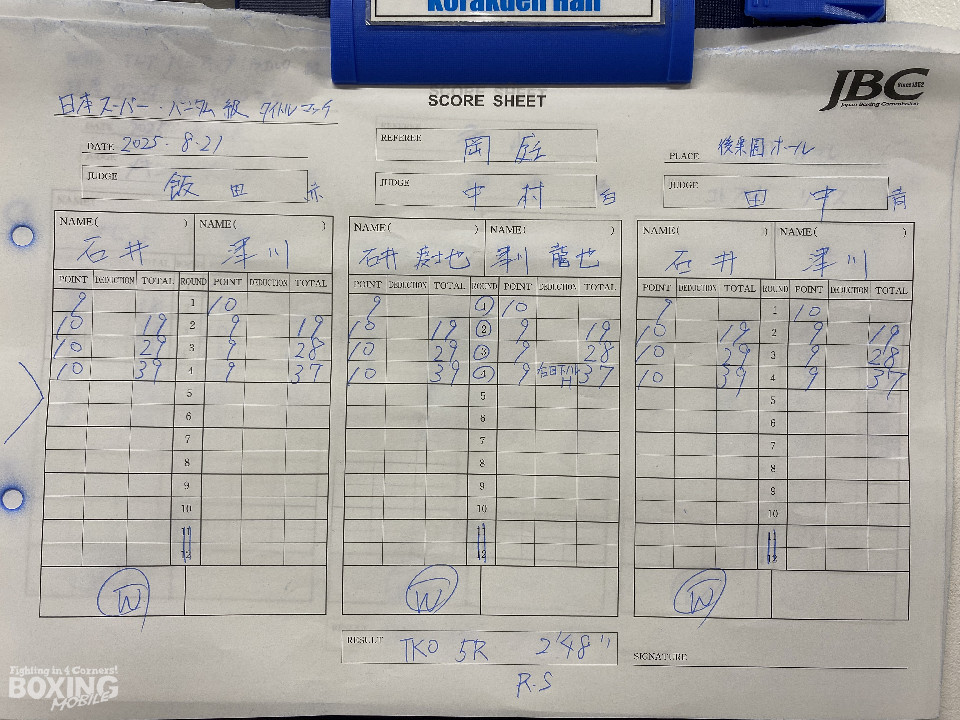 Korakuen Hall
JBC Since 1952
Japan Boxing Commission
SCORE SHEET
日本スーパー・バンタム級 タイトルマッチ
DATE 2025.8.21
REFEREE 岡庭
PLACE 後楽園ホール
JUDGE 飯田 赤
JUDGE 中村 白
JUDGE 田中 青
NAME( ) NAME( ) NAME( ) NAME( ) NAME( ) NAME( )
石井 津川 石井 也 津川 龍也 石井 津川
POINT DEDUCTION TOTAL ROUND POINT DEDUCTION TOTAL POINT DEDUCTION TOTAL ROUND POINT DEDUCTION TOTAL POINT DEDUCTION TOTAL ROUND POINT DEDUCTION TOTAL
9 1 10 9 1 10 9 1 10
10 19 2 9 19 10 19 2 9 19 10 19 2 9 19
10 29 3 9 28 10 29 3 9 28 10 29 3 9 28
10 39 4 9 37 10 39 4 9 右目下ハレ H 37 10 39 4 9 37
5 5 5
6 6 6
7 7 7
8 8 8
9 9 9
10 10 10
11 11 11
12 12 12
W W W
RESULT TKO 5R 2'48"
SIGNATURE
R.S
Fighting in 4 Corners!
BOXING
MOBILE